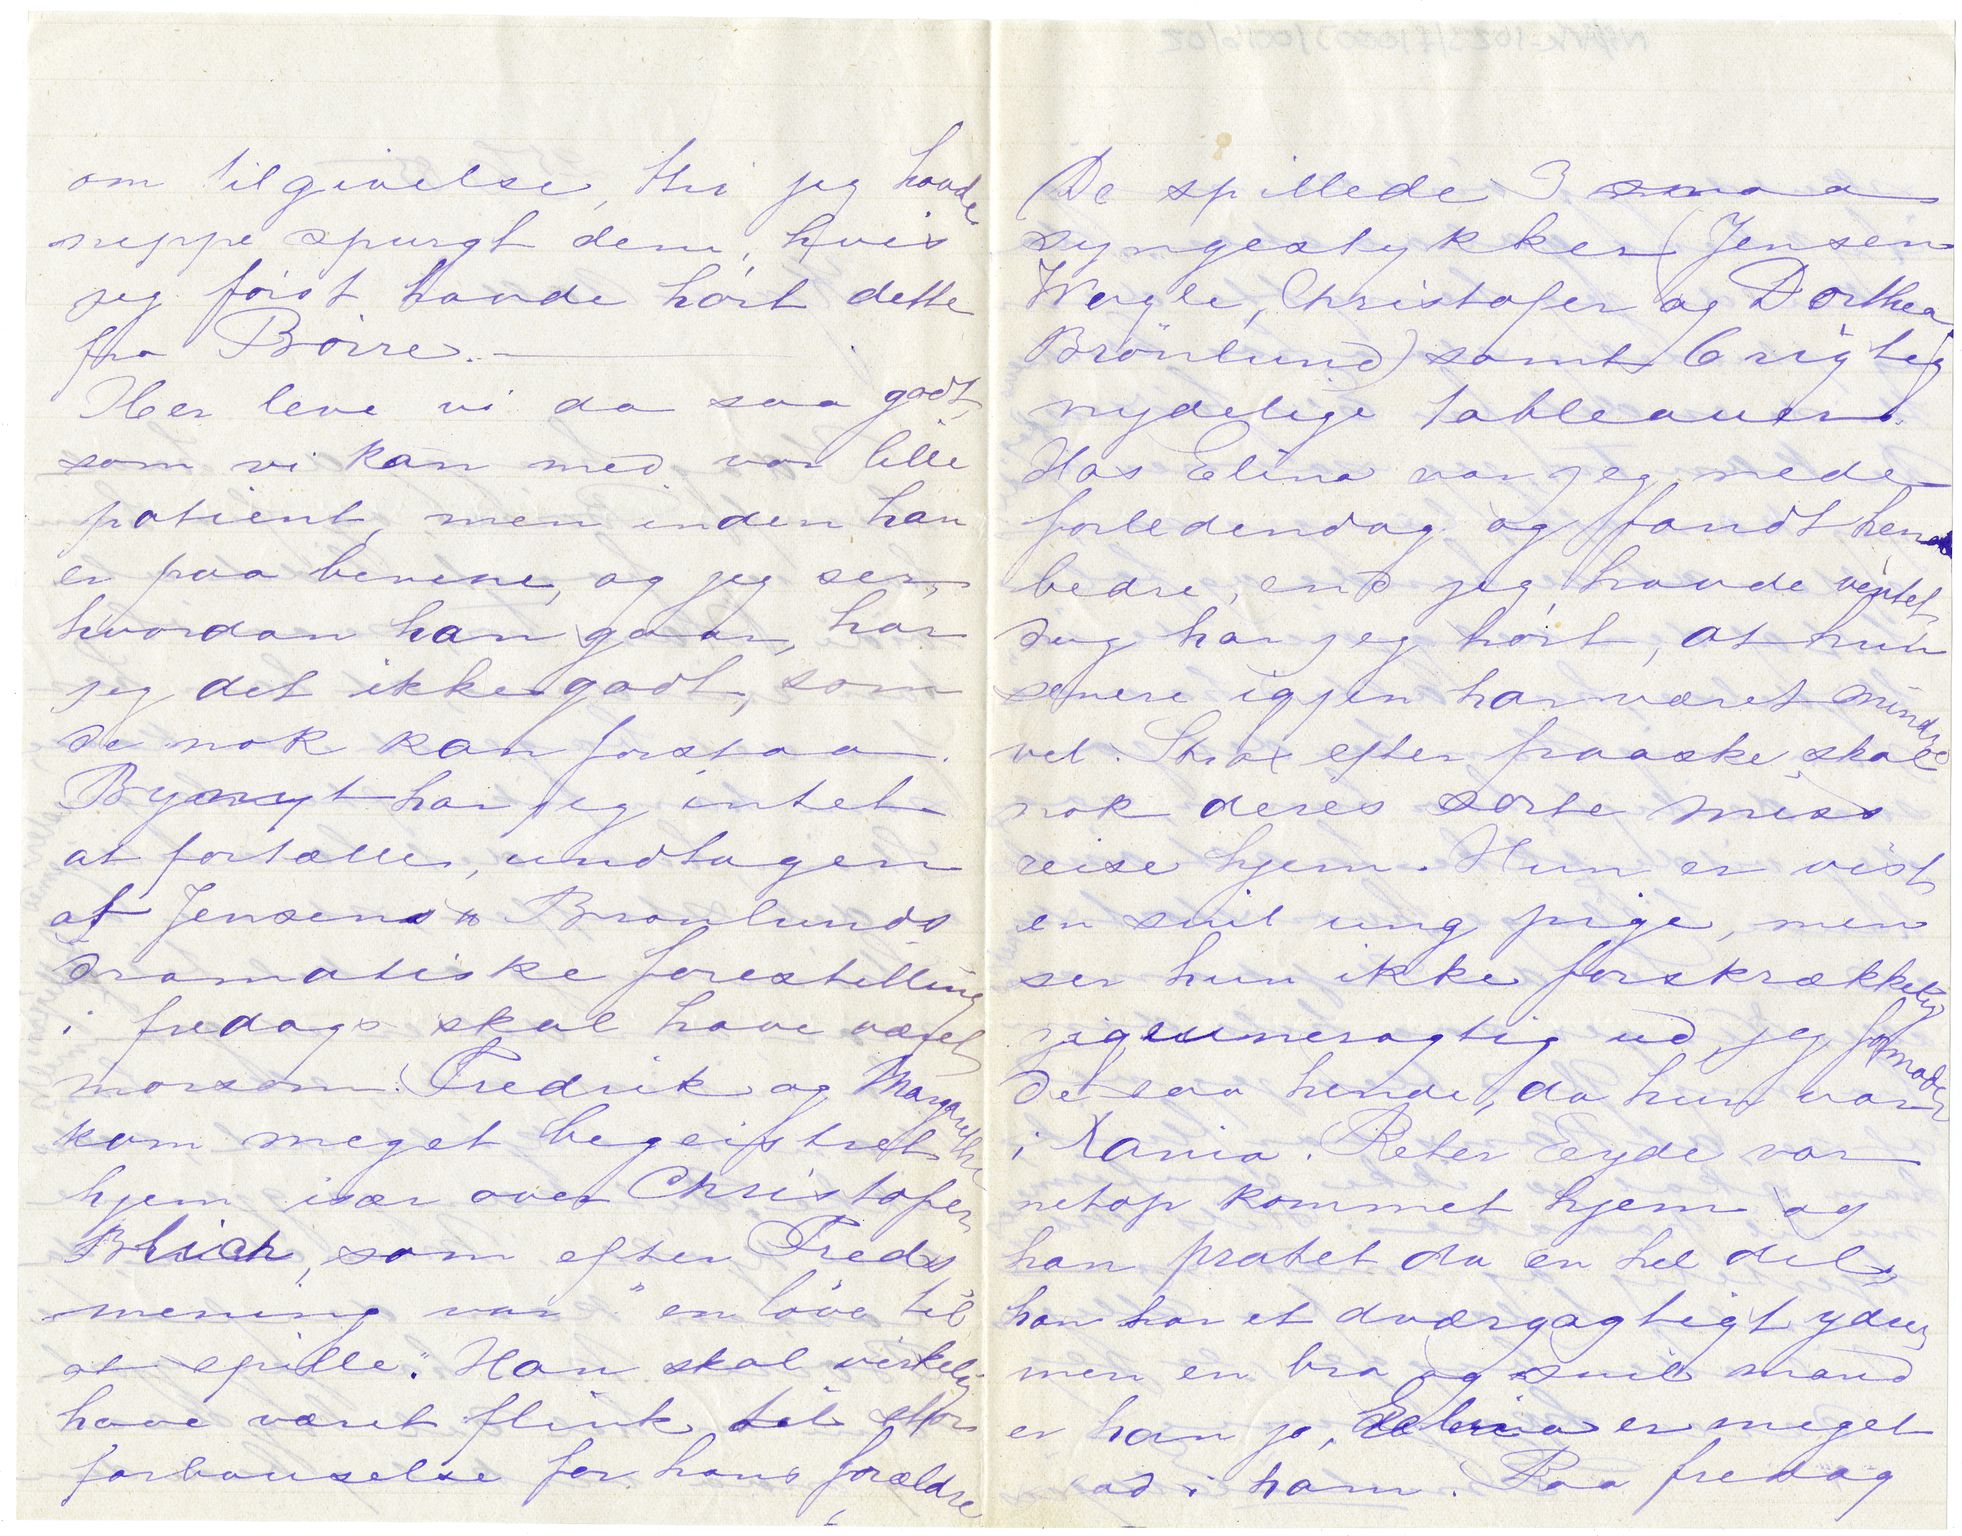 om tilgivelse, thi jeg havde
neppe spurgt dem, hvis
jeg først havde hørt dette
fra Börre.
Her leve vi da saa godt,
som vi kan med vor lille
patient, men inden han
er paa benene, og jeg ser,
hvordan han gaar, har
jeg det ikke godt, som
De nok kan forstaa.
Bynyt har jeg intet
at fortælle, undtagen
at Jensens & Bronlunds
dramatiske forestilling
i fredags skal have været
morsom. Fredrik og Margarethe
kom meget begeistret
hjem især over Christofer
Blich, som efter Freds
mening var "en løve til
at spille". Han skal virkelig
have været flink til stor
forbauselse for hans forældre
(De spillede 3 smaa
syngestykker (Jensen
Wergle, Christofer og Dorthea
Brönlund) samt 6 rigtig
nydelige tableauer.
Hos Elina var jeg nede
forledendag og fandt hende
bedre, end jeg havde ventet,
dog har jeg hørt, at hun
senere igjen har været mindre
vel. Strax efter paaske skal
nok deres sorte miss
reise hjem. Hun er vist
en snil ung pige, men
ser hun ikke forskrækkelig
zigeuneragtig ud, jeg formoder
De saa hende, da hun var
i Xania. Peter Eyde var
netop kommet hjem og
han pratet da en hel del,
han har et dværgagtigt ydre,
men en bra og snil mand
er han jo, Elina er meget
ad i ham. Paa fredag